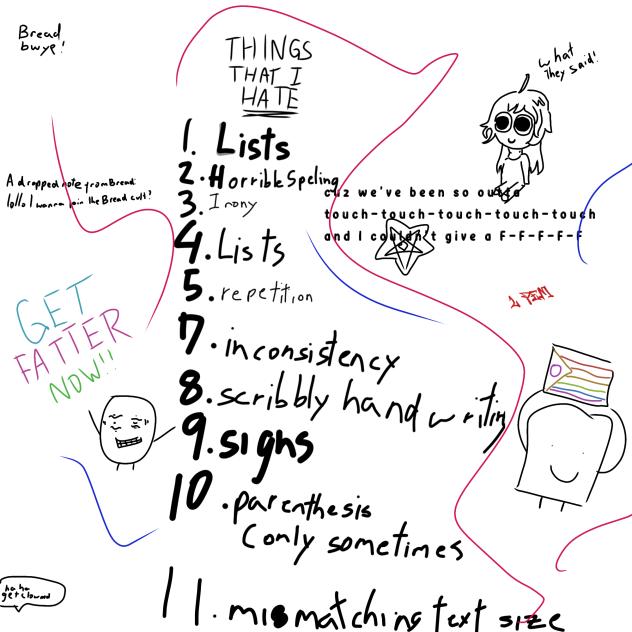 Bread
bwye!
THINGS
THAT I
HATE
what
they said!
1. Lists
2. Horrible Speling
3. Irony
4. Lists
5. repetition
7. inconsistency
8. scribbly hand writing
9. signs
10. parenthesis
(only sometimes
11. mismatching text size
A dropped note from Bread:
lollo I wanna join the Bread cult!
cuz we've been so outta
touch-touch-touch-touch-touch
and I couldn't give a F-F-F-F-F
GET
FATTER
NOW!!
ha ha
get clowned